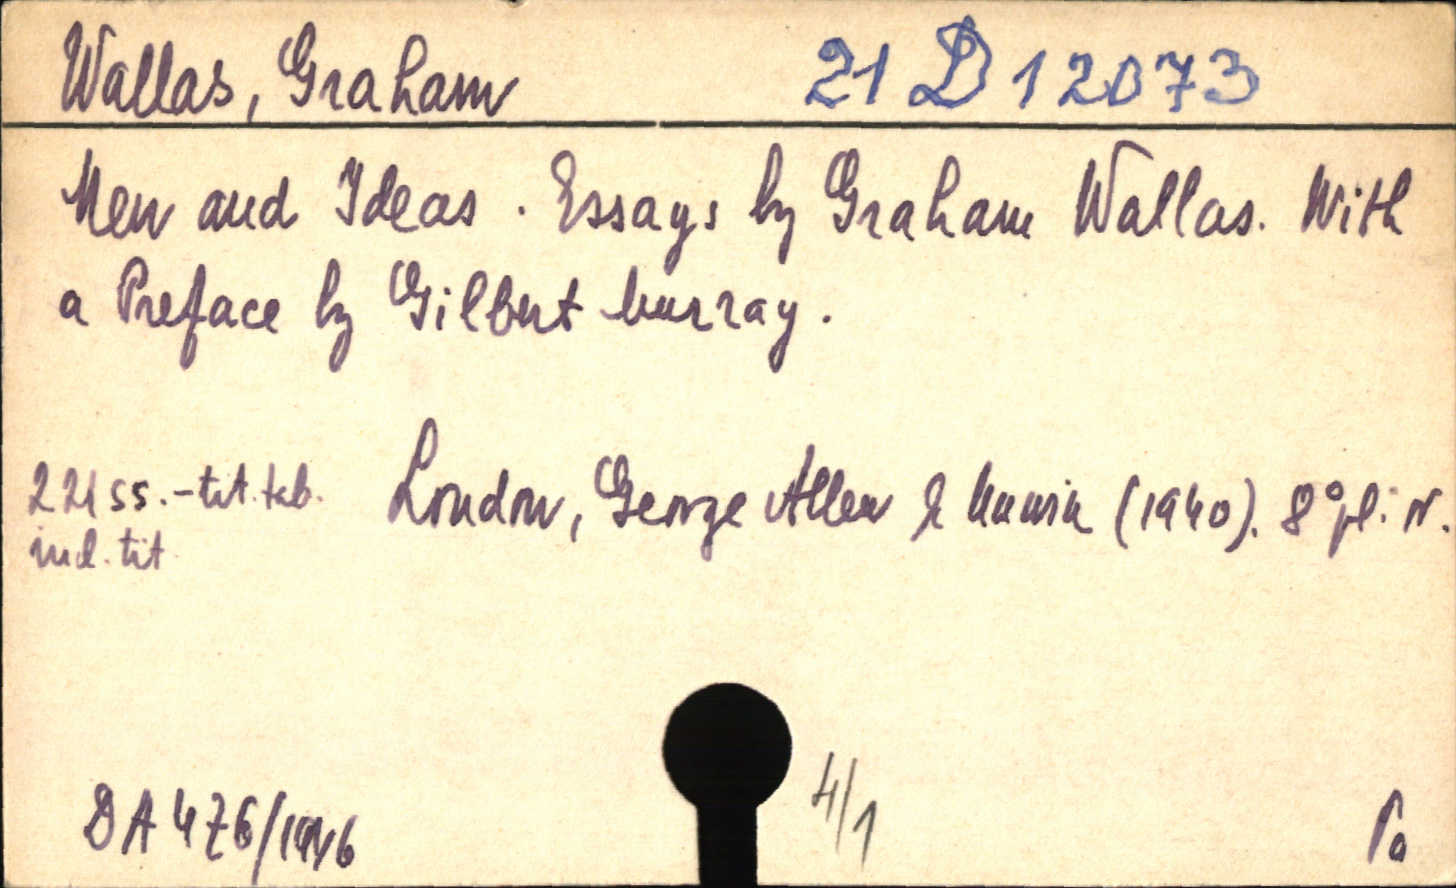 Wallas, Graham 21 D 12073
Men and Ideas. Essays by Graham Wallas. With
a Preface by Gilbert Murray.
221 ss. - tit. tab. London, George Allen & Unwin (1940). 8° pl. N.
ind. tit
DA 476/1946 4/1